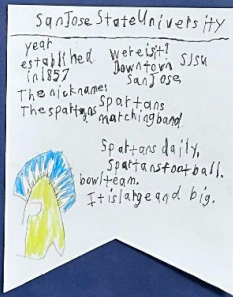 SanJose StateUniversity
year
established
in1857
wereisit?
Downtown SJSU
SanJose,
Thenicknames
Thespartans Spartans
matchingband
Spartans daily,
Spartansfootball.
bowlteam.
Itislargeand big.